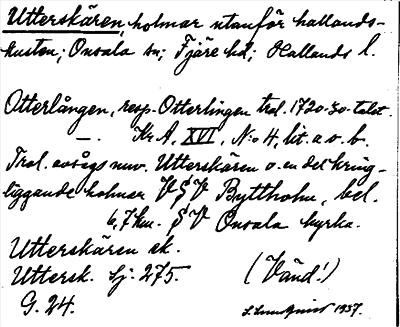 Utterskären, holmar utanför hallands-
kusten; Onsala sn; Fjäre hd; Hallands l.
Otterlången, resp. Otterlingen trol. 1720-30-talet.
— . Kr. A. XVI, N:o 4, lit. a o. b.
Trol. avsågs nuv. Utterskären o. en del kring-
liggande holmar V § V Byttholm, bel.
6,7 km. § V Onsala kyrka.
Utterskären ek.
Uttersk. Sj. 275. (Vänd!)
G. 24. S. Lundquist 1937.